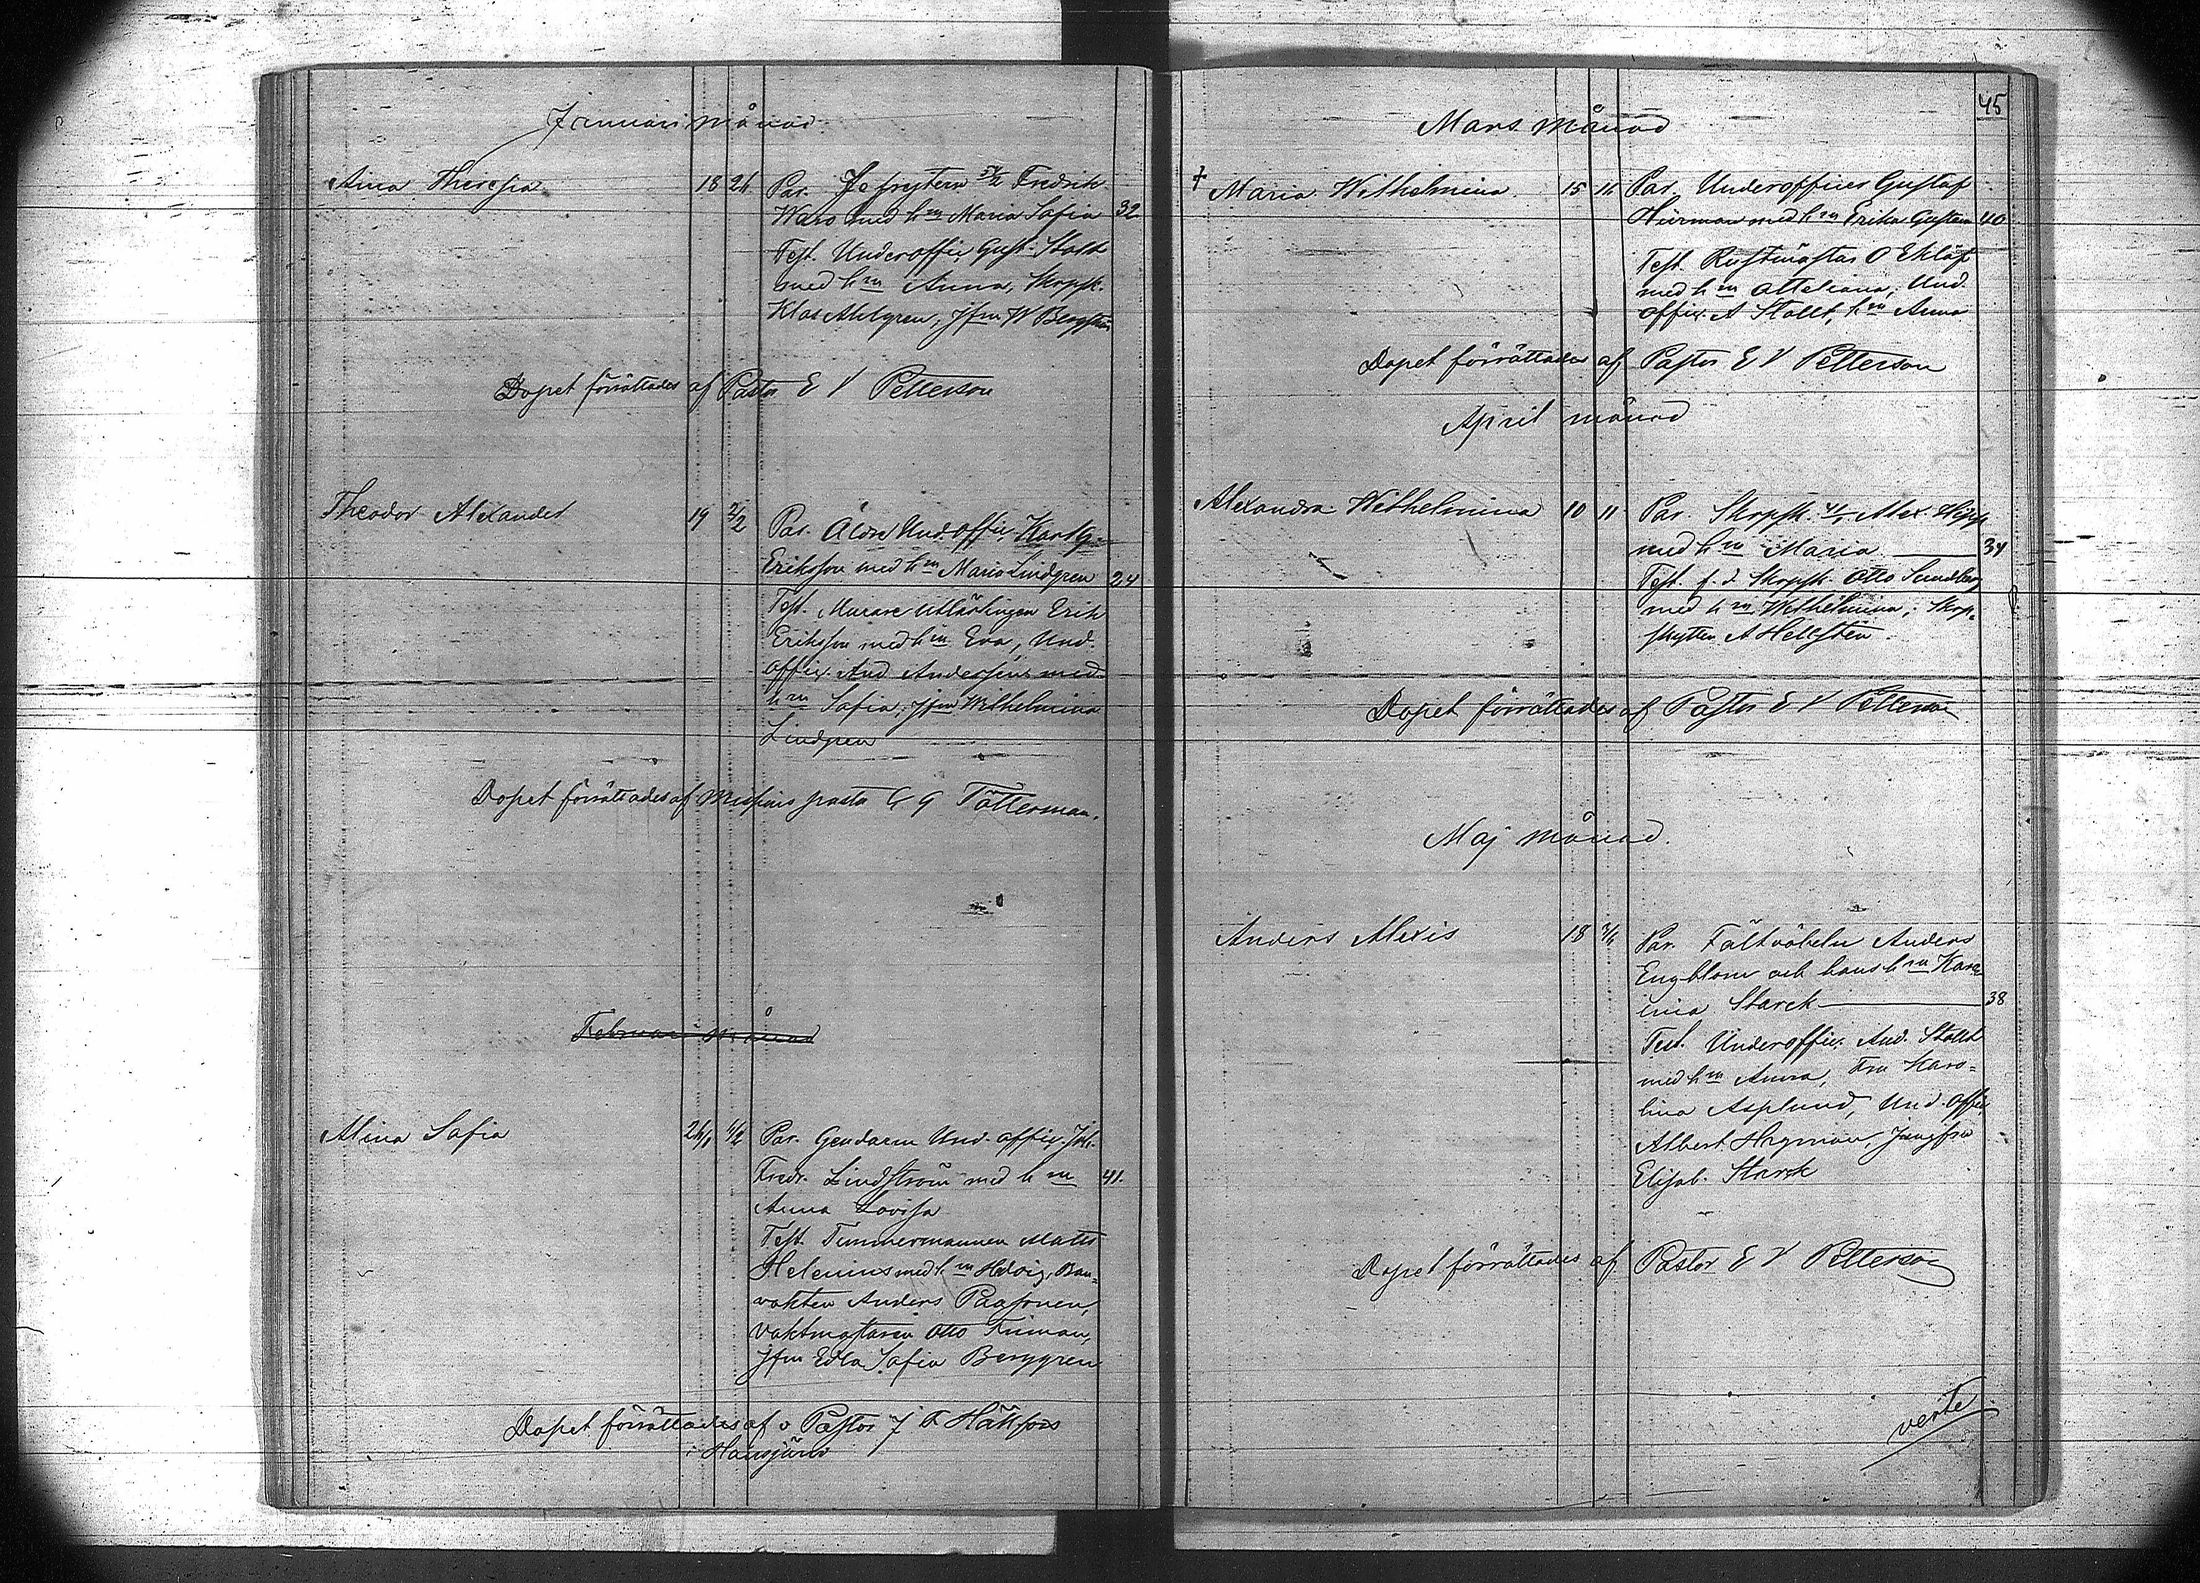 Januari månad
Aina Theresia 18 24 Par. Gefrejtern Fredrik
Waro med h:m Maria Sofia 32
Test. Underoffic Gust. Stollt
med h:m Anna, Skrpsk.
Klas Ahlgren, Jfrn W Bergström
Dopet förrättades af Pastor E V Petterson
Theodor Alexander 19 2/2 Par. Äldre Und.offic Karl G.
Eriksson med h:m Maria Lindgren 24
Test. Murare utlärlingen Erik
Eriksson med h:m Eva, Und.
offic. And Andersins med
h:m Sofia, jfrn Wilhelmina
Lindgren
Dopet förrättades af Missions pastor C G Tötterman.
Februari månad
Alina Sofia 24/1 11/2 Par. Gendarm Und. offic. Joh.
Fredr. Lindström med h:m 41.
Anna Lovisa
Test. Timmermannen Matts
Helenius med h:m Hedvig, Ban-
vakten Anders Paasonen,
Vaktmästaren Otto Friman,
Jfrn Edla Sofia Berggren
Dopet förrättades af v. Pastor J F Häkfors
i Hausjärvi
45
Mars månad
† Maria Wilhelmina 15 16 Par. Underofficer Gustaf
Hurman med h:m Erika Gustava 40
Test. Rustmästar O Eklöf
med h:m Atteliana, Und.
offic. A Stollt, h:m Anna
Dopet förrättades af Pastor E V Petterson
April månad
Alexandra Wilhelmina 10 11 Par. Skrpsk. Alex.
med h:m Maria 34
Test. f. d Skrpsk Otto Sundberg
med h:m Wilhelmina, Skrp-
skytten A Hellstén.
Dopet förrättades af Pastor E V Petterson
Maj månad.
Anders Alexis 18 Par. Fältväbeln Anders
Engblom och hans h:m Karo-
lina Starck 38
Test. Underoffic. And. Stollt
med h:m Anna, Fru Karo=
lina Asplund, Und. offic
Albert Hagman, Jungfru
Elisab. Starck
Dopet förrättades af Pastor E V Petterson
verte.